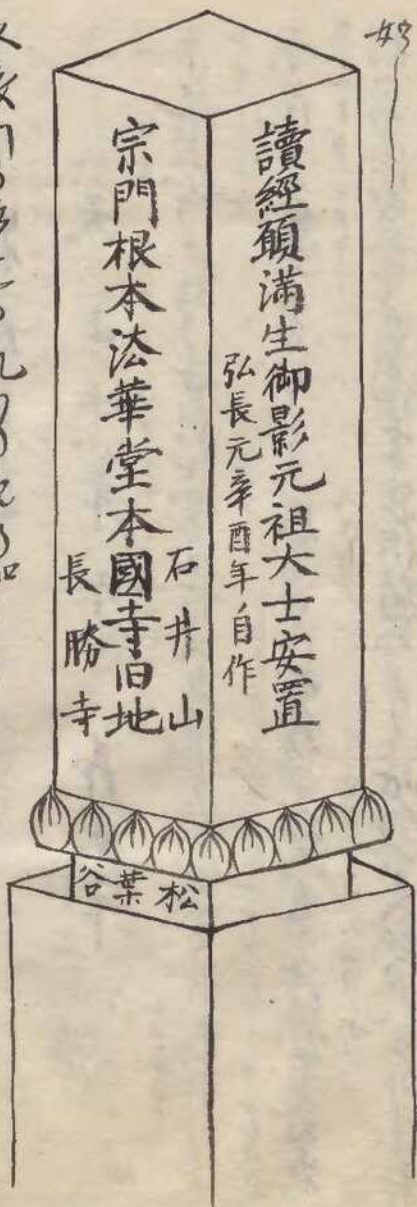 如
讀經願滿生御影元祖大士安置
弘長元辛酉年自作
宗門根本法華堂本國寺旧地
石井山
長勝寺
松葉谷